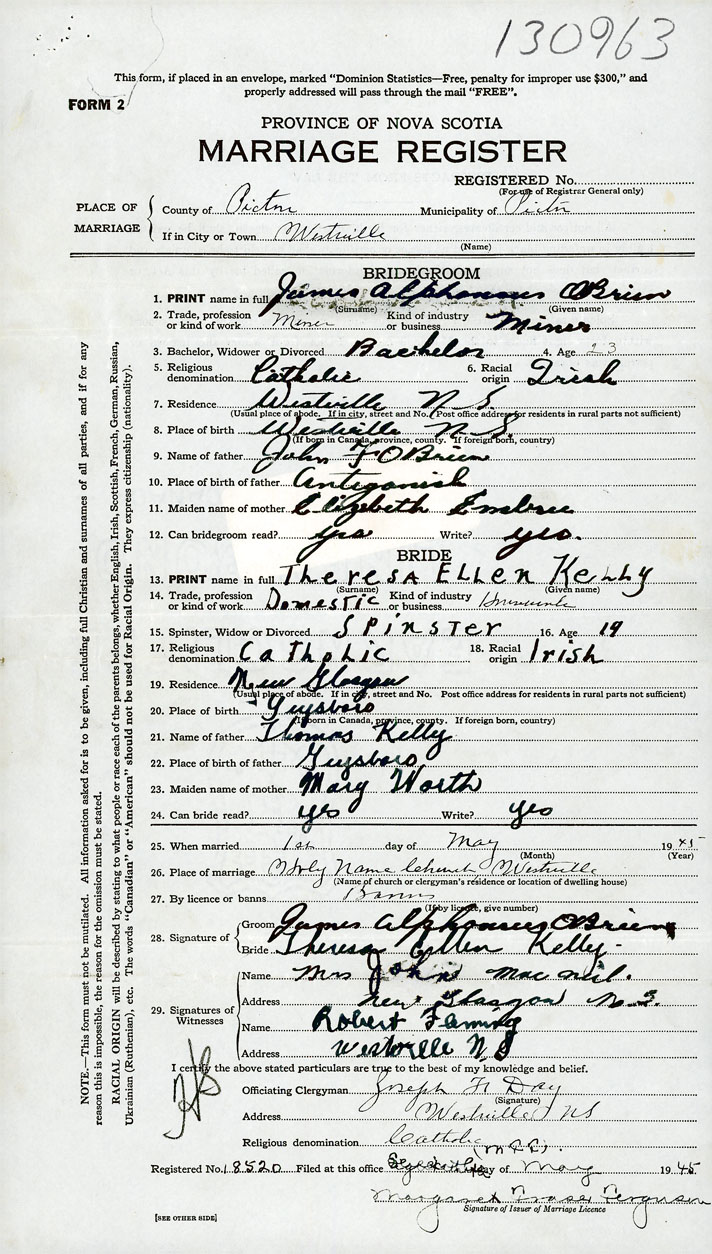 130963
This form, if placed in an envelope, marked “Dominion Statistics—Free, penalty for improper use $300,” and
properly addressed will pass through the mail “FREE”.
FORM 2
PROVINCE OF NOVA SCOTIA
MARRIAGE REGISTER
REGISTERED No.
(For use of Registrar General only)
PLACE OF MARRIAGE
County of Pictou Municipality of Pictou
If in City or Town Westville
(Name)
BRIDEGROOM
1. PRINT name in full James Alphonsus O'Brien
(Surname) (Given name)
2. Trade, profession or kind of work Miner Kind of industry or business Miner
3. Bachelor, Widower or Divorced Bachelor 4. Age 23
5. Religious denomination Catholic 6. Racial origin Irish
7. Residence Westville N S.
(Usual place of abode. If in city, street and No. Post office address for residents in rural parts not sufficient)
8. Place of birth Westville N S.
(If born in Canada, province, county. If foreign born, country)
9. Name of father John F O'Brien
10. Place of birth of father Antigonish
11. Maiden name of mother Elizabeth Embree
12. Can bridegroom read? yes Write? yes.
BRIDE
13. PRINT name in full Theresa Ellen Kelly
(Surname) (Given name)
14. Trade, profession or kind of work Domestic Kind of industry or business
15. Spinster, Widow or Divorced Spinster 16. Age 19
17. Religious denomination Catholic 18. Racial origin Irish
19. Residence New Glasgow
(Usual place of abode. If in city, street and No. Post office address for residents in rural parts not sufficient)
20. Place of birth Guysboro
(If born in Canada, province, county. If foreign born, country)
21. Name of father Thomas Kelly
22. Place of birth of father Guysboro
23. Maiden name of mother Mary Worth
24. Can bride read? yes Write? yes
25. When married 1st day of May 1945
(Month) (Year)
26. Place of marriage Holy Name Church Westville
(Name of church or clergyman's residence or location of dwelling house)
27. By licence or banns Banns
(If by licence, give number)
28. Signature of
Groom James Alphonsus O'Brien
Bride Theresa Ellen Kelly
29. Signatures of Witnesses
Name Mrs John Mac neil.
Address New Glasgow N.S.
Name Robert Fleming
Address Westville N S
I certify the above stated particulars are true to the best of my knowledge and belief.
Officiating Clergyman Joseph H Day
(Signature)
Address Westville NS
Religious denomination Catholic
Registered No. 18520 Filed at this office day of May 1945
Margaret Fraser Ferguson
Signature of Issuer of Marriage Licence
[SEE OTHER SIDE]
NOTE.—This form must not be mutilated. All information asked for is to be given, including full Christian and surnames of all parties, and if for any
reason this is impossible, the reason for the omission must be stated.
RACIAL ORIGIN will be described by stating to what people or race each of the parents belongs, whether English, Irish, Scottish, French, German, Russian,
Ukrainian (Ruthenian), etc. The words “Canadian” or “American” should not be used for Racial Origin. They express citizenship (nationality).